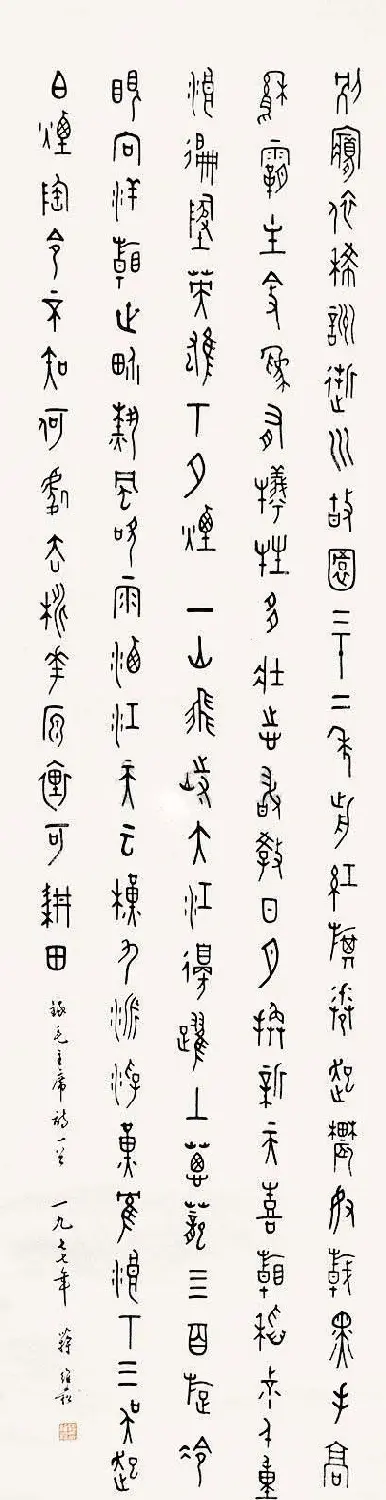 別夢依稀詶逝川故園三十二年前紅旗捲起農奴戟黑手高
懸霸主鞭爲有犧牲多壯志敢教日月換新天喜看稻菽千重
浪遍地英雄下夕煙 一山飛峙大江邊躍上蔥蘢四百旋冷
眼向洋看世界熱風吹雨灑江天雲橫九派浮黃鶴浪下三吳起
白煙陶令不知何處去桃花原裏可耕田 錄毛主席詩二首 一九七七年 蔣維崧